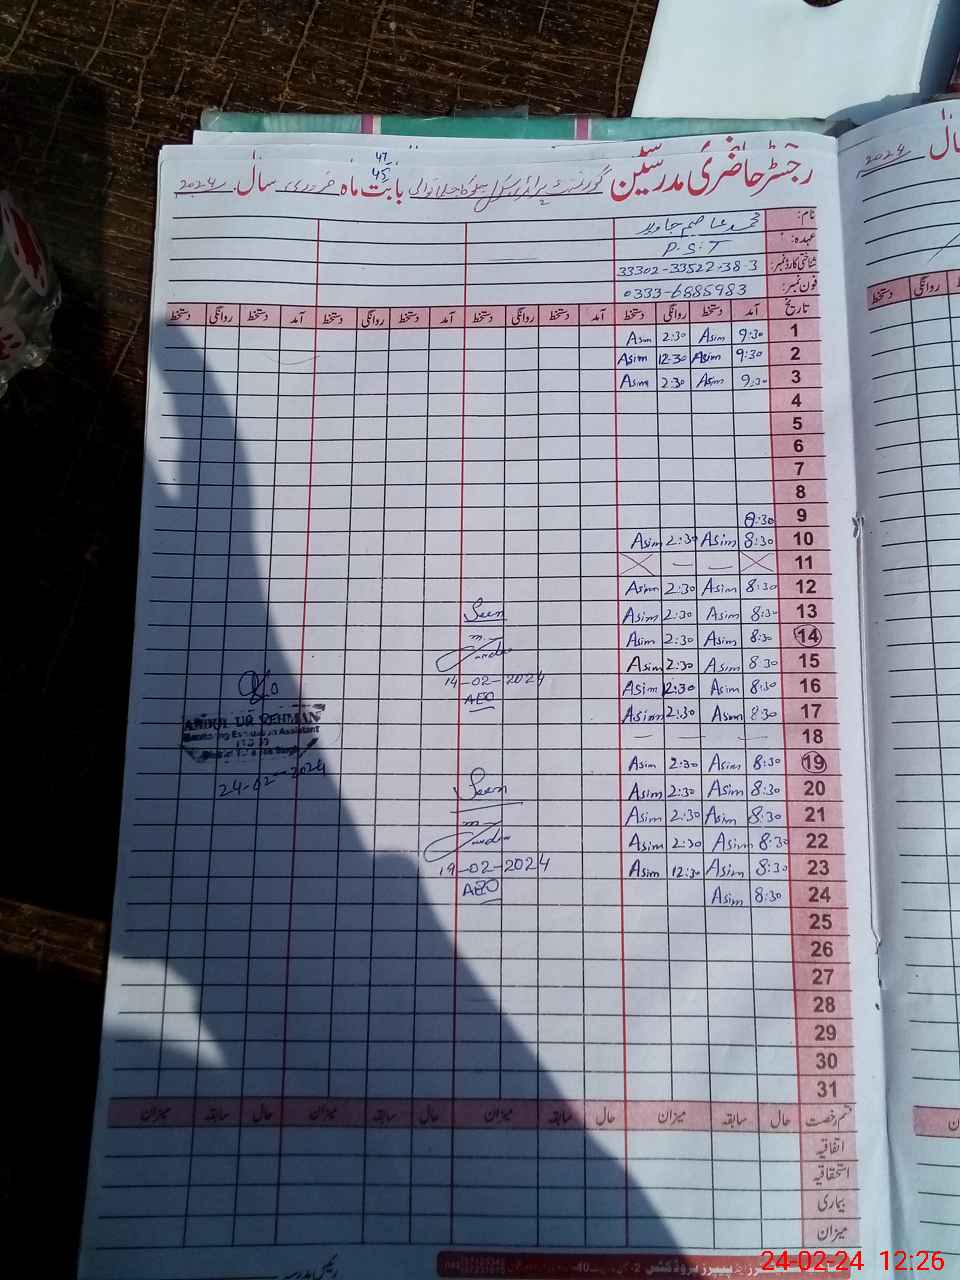 رجسٹر حاضری مدرسین گورنمنٹ پرائمری سکول بابت ماہ فروری سال 2024
47
45
نام: محمد عاصم جاوید
عہدہ: P.S.T
شناختی کارڈ نمبر: 33302-33522 38 3
فون نمبر: 0333-6885983
تاریخ آمد دستخط روانگی دستخط آمد دستخط روانگی دستخط آمد دستخط روانگی دستخط آمد دستخط روانگی دستخط
1 9:30 Asim 2:30 Asim
2 9:30 Asim 12:30 Asim
3 9:30 Asim 2:30 Asim
4
5
6
7
8
9 8:30
10 8:30 Asim 2:30 Asim
11
12 8:30 Asim 2:30 Asim
13 8:30 Asim 2:30 Asim
Seen
14 8:30 Asim 2:30 Asim
15 8:30 Asim 2:30 Asim
14-02-2024
16 8:30 Asim 12:30 Asim
AEO
17 8:30 Asim 2:30 Asim
ABDUL UR REHMAN
Monitoring Evaluation Assistant
24-02-2024
18
19 8:30 Asim 2:30 Asim
20 8:30 Asim 2:30 Asim
Seen
21 8:30 Asim 2:30 Asim
22 8:30 Asim 2:30 Asim
23 8:30 Asim 12:30 Asim
19-02-2024
24 8:30 Asim
AEO
25
26
27
28
29
30
31
قسم رخصت حال سابقہ میزان حال سابقہ میزان حال سابقہ میزان حال سابقہ میزان
اتفاقیہ
استحقاقیہ
بیماری
میزان
رئیس مدرسہ
پیپرز پروڈکٹس
سال 2024
روانگی دستخط
24-02-24 12:26